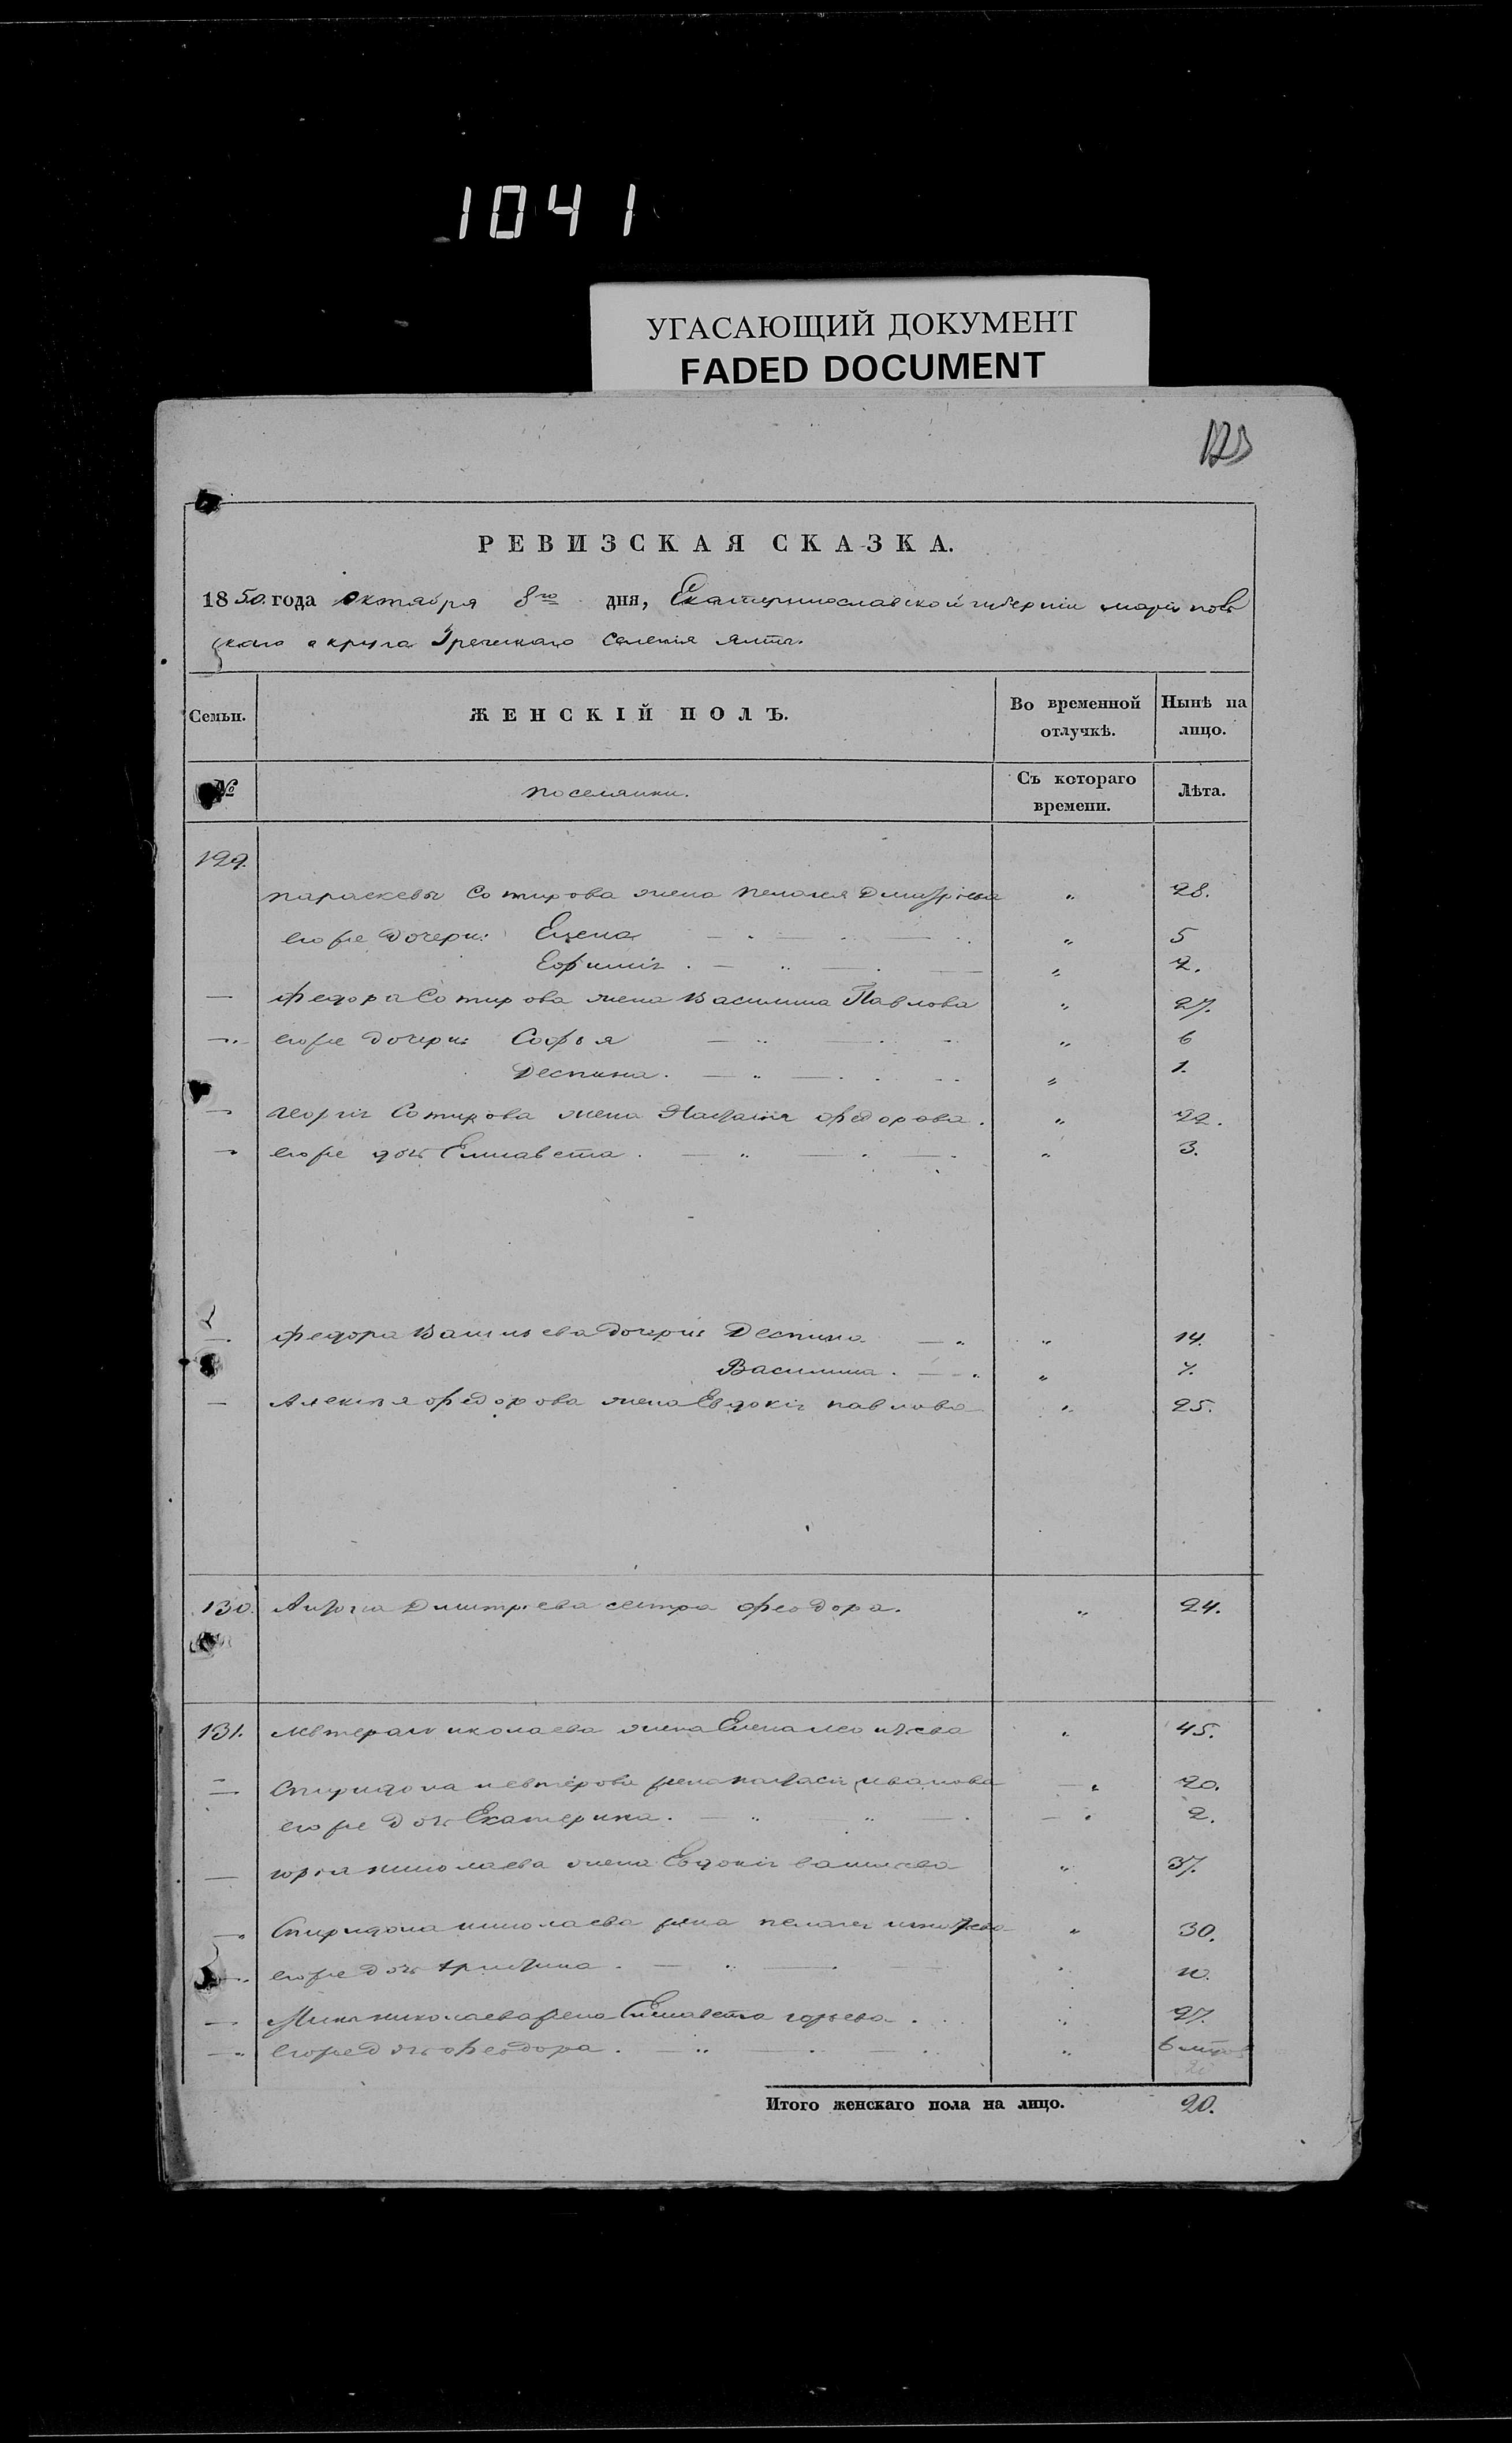 1041
УГАСАЮЩИЙ ДОКУМЕНТ
FADED DOCUMENT
123
РЕВИЗСКАЯ СКАЗКА.
1850. года октября 8го дня, Екатеринославской губерніи маріупольскаго округа Греческаго Селенія Ялты.
Семьи. ЖЕНСКІЙ ПОЛЪ. Во временной отлучкѣ. Нынѣ на лицо.
№ поселянки. Съ котораго времени. Лѣта.
129.
параскевы Сотирова жена Пелагея Дмитріева " 28.
его же дочери: Елена " 5
Ефиміия " 2.
— Федора Сотирова жена Василиса Павлова " 27.
—" его же дочери: Софья " 6
Деспина. " 1.
— Георгія Сотирова жена Настасія Федорова. " 22.
— его же дочь Елисавета. " 3.
— Федора Васильева дочери: Деспина " 14.
Василиса. " 7.
— Алексѣя Федорова жена Евдокія павлова " 25.
130. Антона Дмитріева сестра Феодора. " 24.
131. Левтера николаева жена Елена " 45.
— Спиридона левтерова жена настасія иванова " 20.
его же дочь Екатерина. " 2.
— юрья николаева жена Евдокія васильева " 37.
— Спиридона николаева жена пелагея " 30.
— его же дочь христина. " 10.
— николаева жена Елисавета юрьева. " 27.
—" его же дочь Феодора. " 6
Итого женскаго пола на лицо. 20.